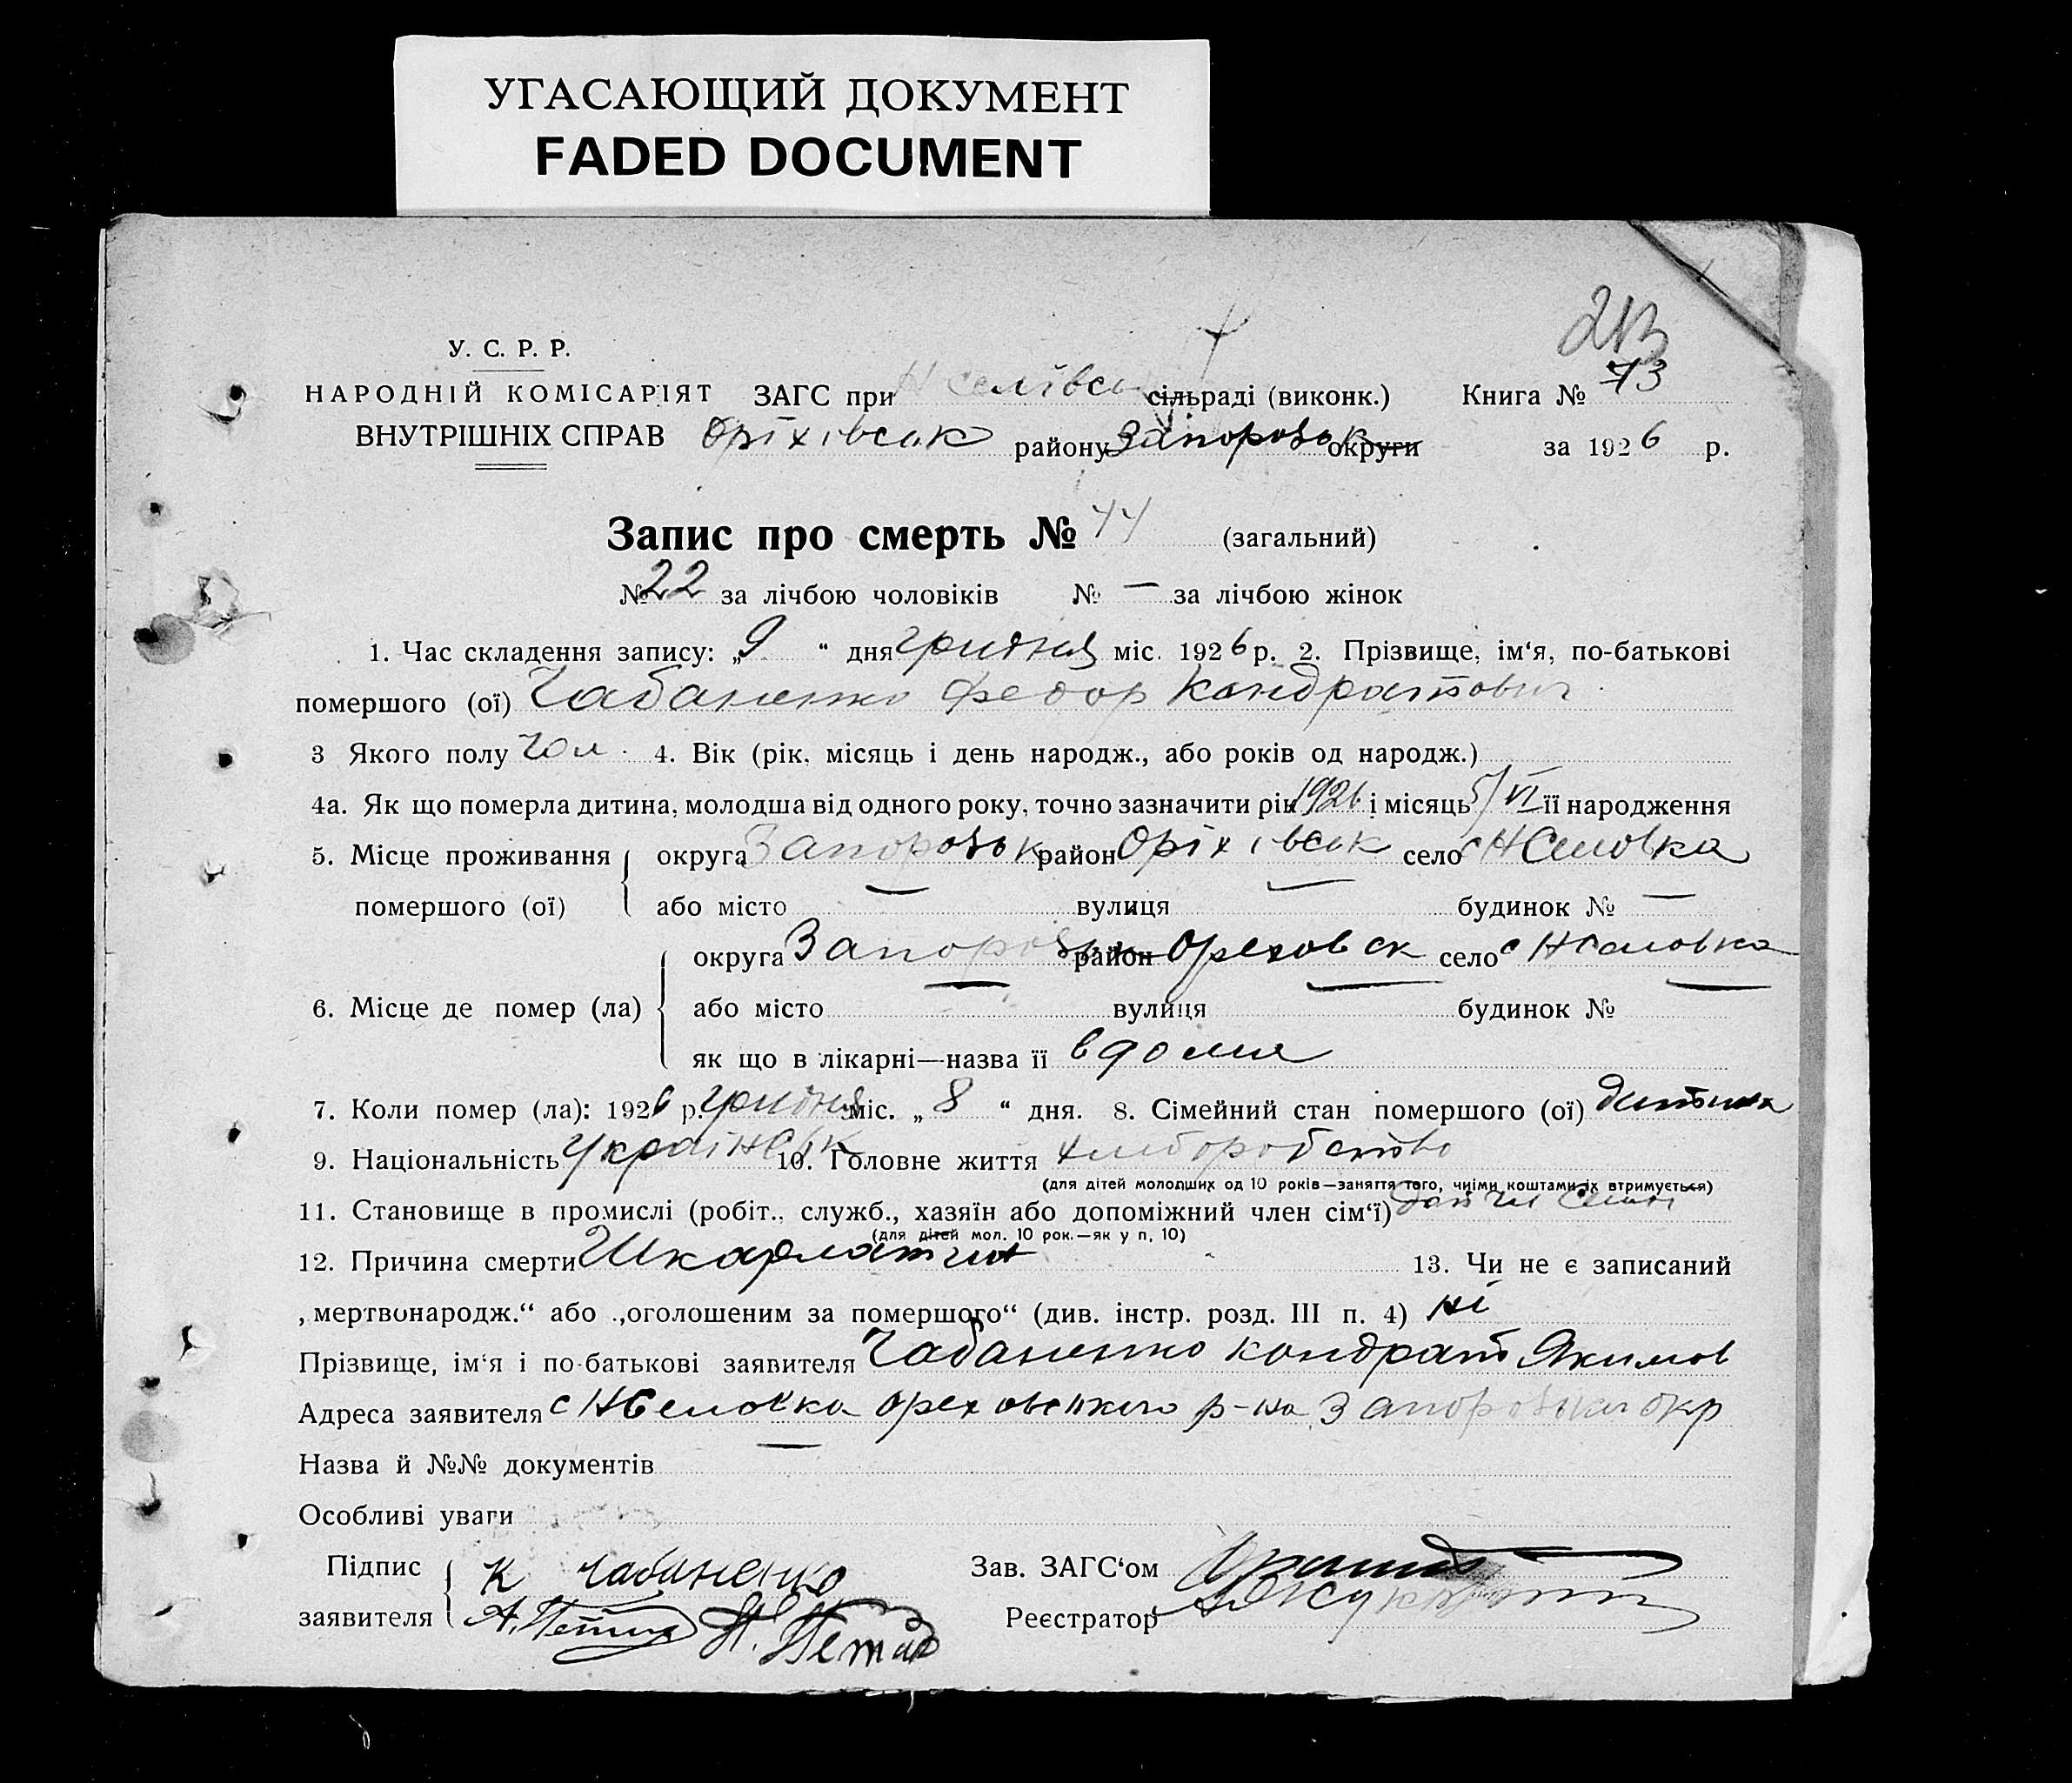 УГАСАЮЩИЙ ДОКУМЕНТ
FADED DOCUMENT
213
У. С. Р. Р.
НАРОДНІЙ КОМІСАРІЯТ ЗАГС при сільраді (виконк.) Книга № 73
ВНУТРІШНІХ СПРАВ Оріхівськ району Запорозьк округи за 1926 р.
Запис про смерть № 44 (загальний)
№ 22 за лічбою чоловіків № — за лічбою жінок
1. Час складення запису: „9“ дня грудня міс. 1926 р. 2. Прізвище, ім‘я, по-батькові
помершого (ої) Чабаненко Федор Кондратович
3 Якого полу Чол. 4. Вік (рік, місяць і день народж., або років од народж.)
4а. Як що померла дитина, молодша від одного року, точно зазначити рік 1926 і місяць 5/VI її народження
5. Місце проживання округа Запорозьк район Оріхівськ село с НСеловка
помершого (ої) або місто — вулиця — будинок № —
округа Запорозьк район Ореховск село с НСеловка
6. Місце де помер (ла) або місто — вулиця — будинок № —
як що в лікарні—назва її вдома
7. Коли помер (ла): 1926 р. грудня міс. „8“ дня. 8. Сімейний стан помершого (ої) дитина
9. Національність Українськ 10. Головне життя хліборобство
(для дітей молодших од 10 років—заняття того, чиїми коштами їх втримується)
11. Становище в промислі (робіт., служб., хазяїн або допоміжний член сім‘ї)
(для дітей мол. 10 рок.—як у п. 10)
12. Причина смерти Шкарлатина 13. Чи не є записаний
„мертвонародж.“ або „оголошеним за помершого“ (див. інстр. розд. III п. 4) ні
Прізвище, ім‘я і по-батькові заявителя Чабаненко Кондрат Якимов
Адреса заявителя с НСеловка Ореховського р-на Запорозької окр
Назва й №№ документів —
Особливі уваги
Підпис К Чабаненко Зав. ЗАГС‘ом
заявителя Реєстратор